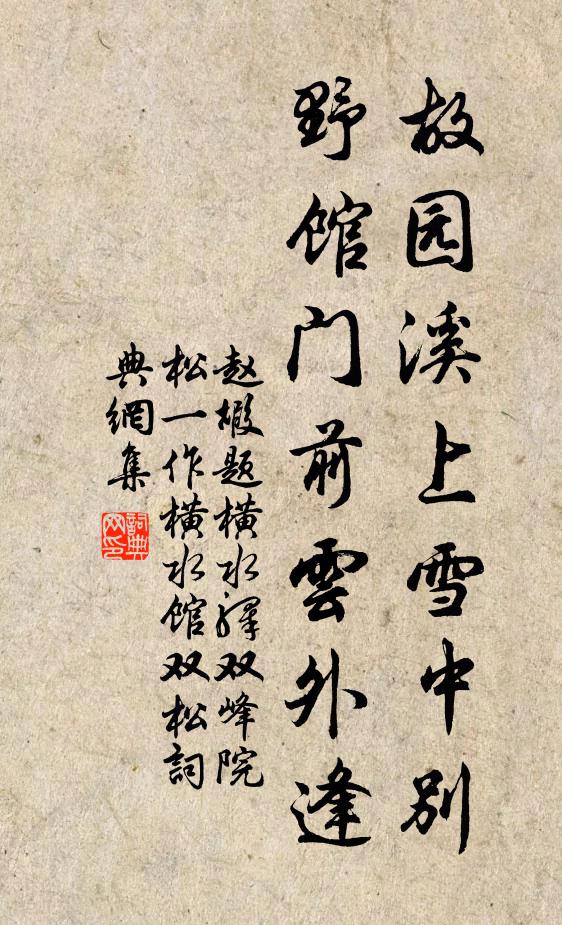 故园溪上雪中别
野馆门前雲外逢
赵嘏题横水驿双峰院
松一作横水馆双松詞
典網集
詞典网印